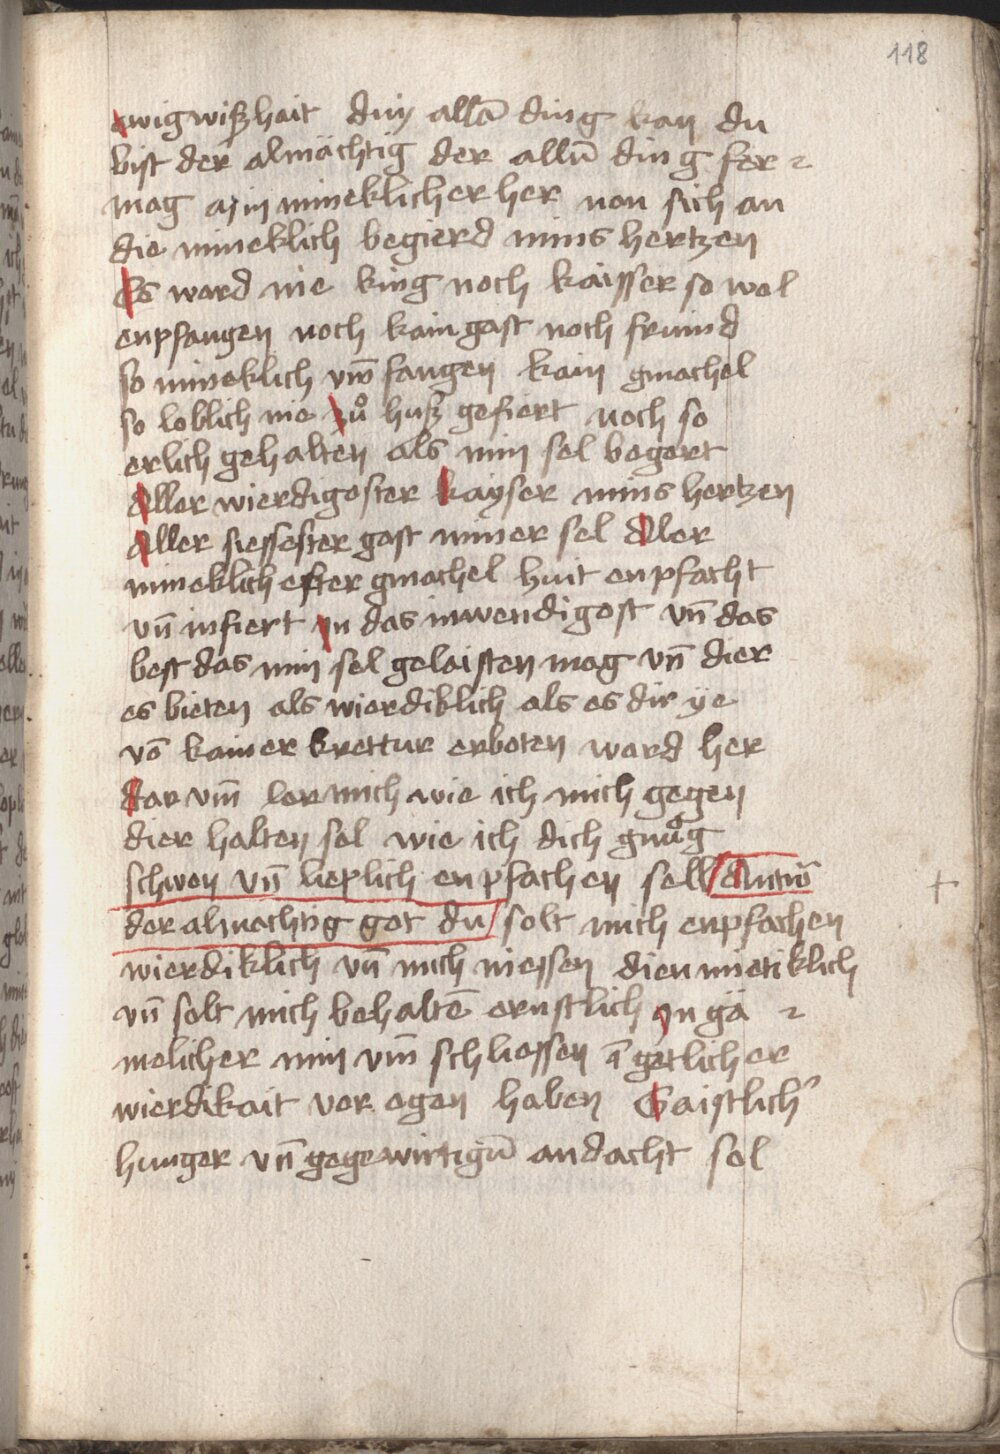 118
ewigwißhait diu allā ding kan du
bist der almächtig der allū ding fer
mag ain mineklicher her nun sich an
die mineklich begierd mins hertzen
Es ward nie king noch kaisser so wol
enpfangen noch kain gast noch fruind
so mineklich um̄fangen kain gmachel
so loblich nie zuͦ huß gefiert noch so
erlich gehalten als min sel begert
Aller wierdigoster kayser mins hertzen
Aller siessester gast miner sel Aler
mineklichester gmachel huit enpfacht
vn̄ infiert in das inwendigost vn̄ das
best das min sel gelaisten mag vn̄ dier
es bieten als wierdiklich als es dir ye
vō kainer krettur erboten ward her
dar vm̄ ler mich wie ich mich gegen
dier halten sol wie ich dich gnuͦg
schwon vn̄ lieplich enpfachen soll Antw̄
der almechtig got du solt mich enpfachen
wierdiklich vn̄ mich niessen diemietiklich
vn̄ solt mich behaltē ernstlich in gä
melicher min vm̄ schliessen ā getlicher
wierdikait vor ogen haben Gaistlich
hunger vn̄ gegewirtigū andacht sol